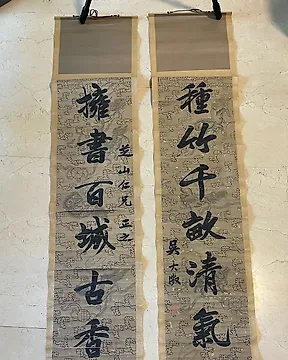 種竹千畝清氣
吳大澂
芝山仁兄正之
擁書百城古香